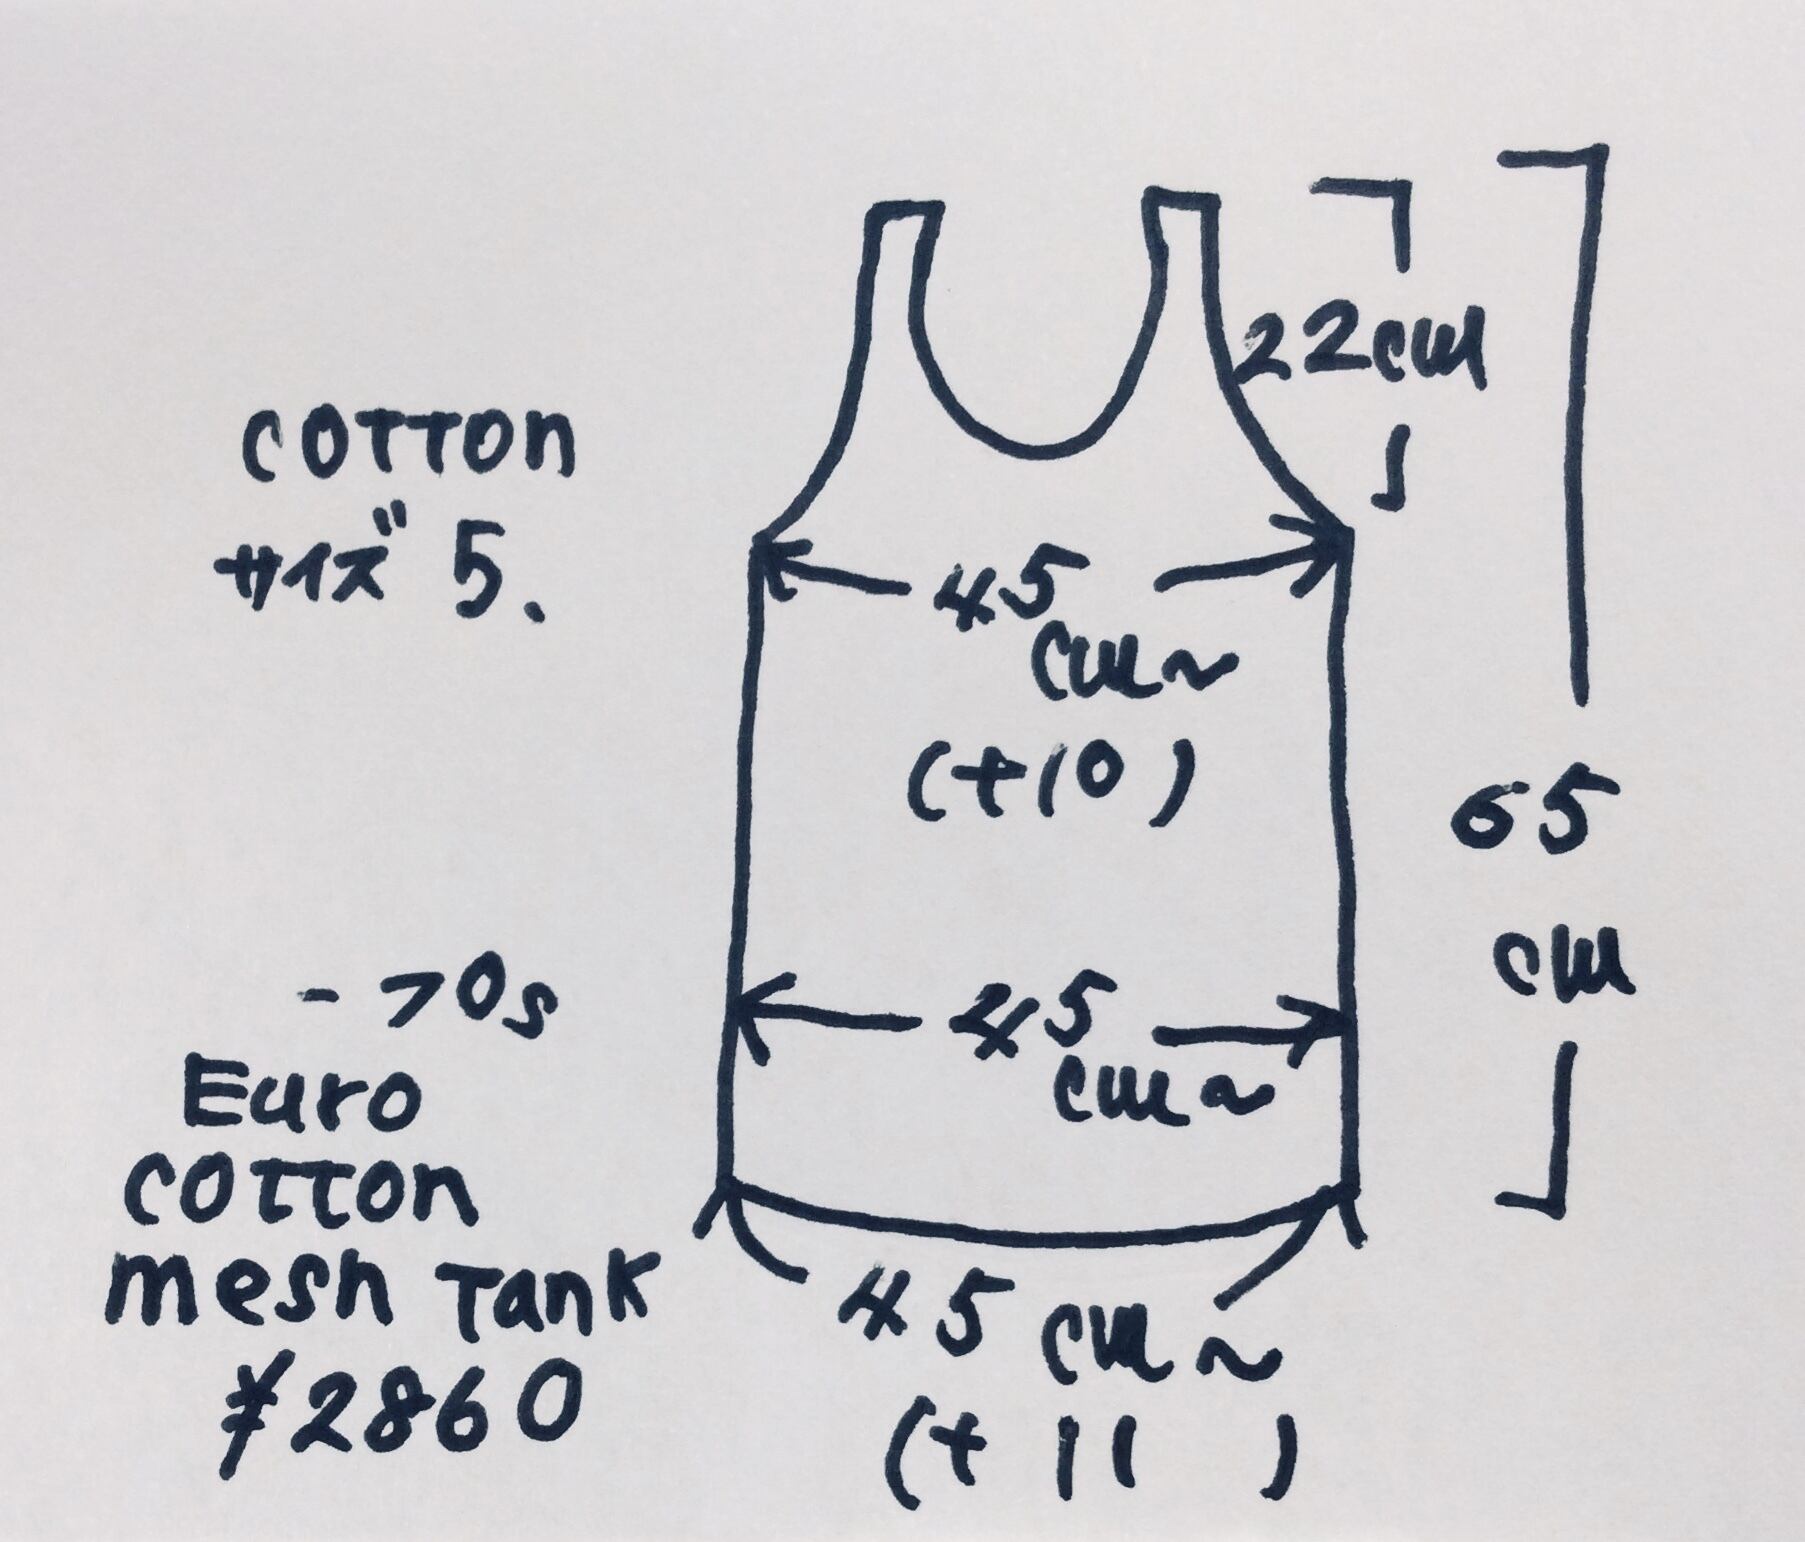 22cm
65
cm
cotton
サイズ 5.
45
cm~
(+10)
45
cm~
-70s
Euro
cotton
mesh Tank
¥2860
45 cm~
(+11 )